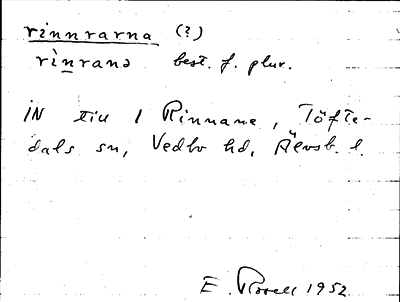 rinnrarna (?)
rìn̲ranə best. f. plur.
IN till / Rinnane, Töfte-
dals sn, Vedbo hd, Älvsb. l.
E. 1952